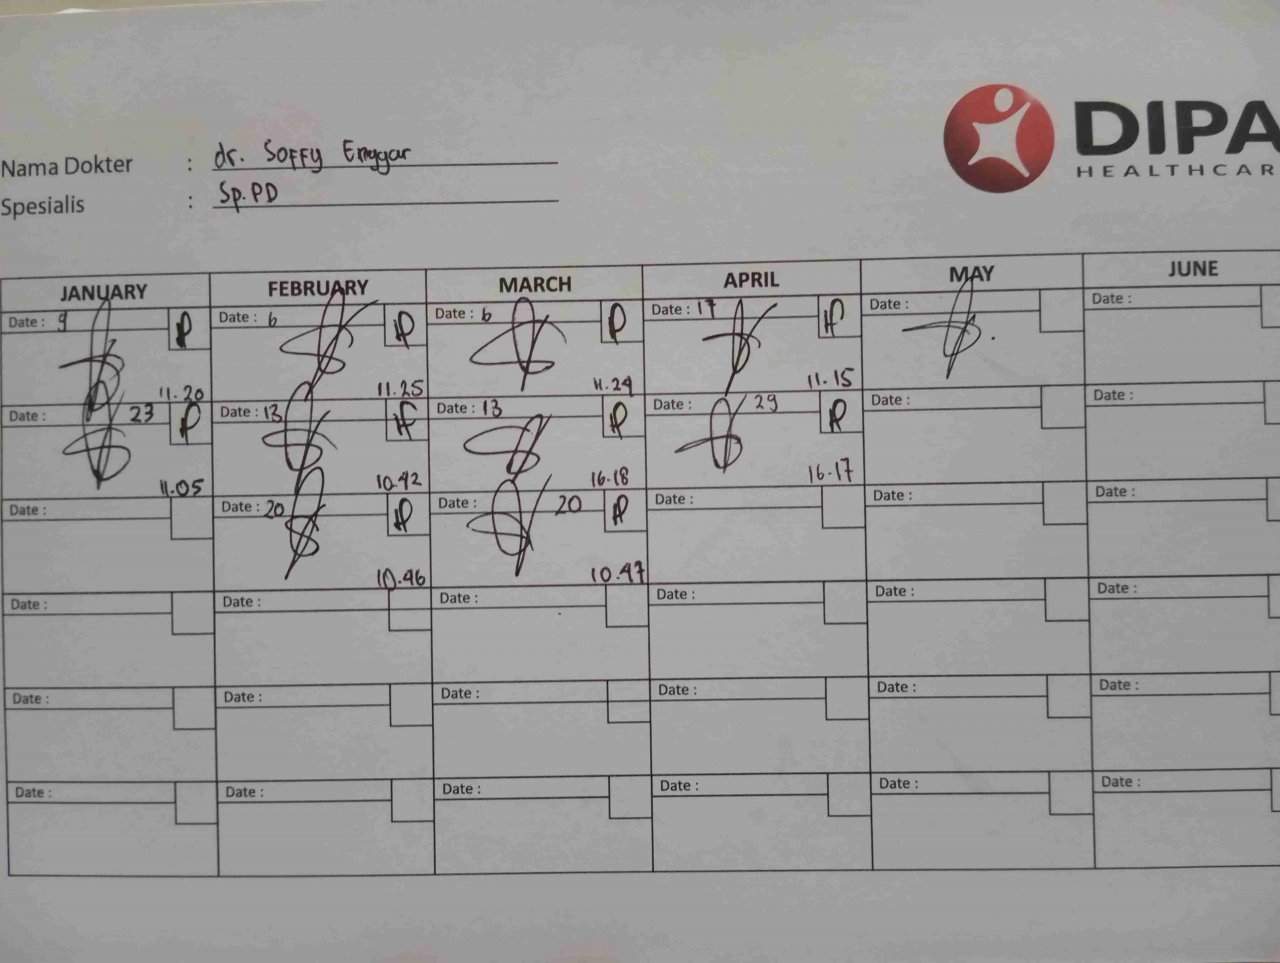 DIPA
HEALTHCAR
Nama Dokter : dr. Soffy Enggar
Spesialis : Sp.PD
JANUARY FEBRUARY MARCH APRIL MAY JUNE
Date : 9 Date : 6 Date : 6 Date : 17 Date : Date :
11.20 11.25 11.24 11.15
Date : 23 Date : 13 Date : 13 Date : 29 Date : Date :
11.05 10.42 16.18 16.17
Date : Date : 20 Date : 20 Date : Date : Date :
10.46 10.47
Date : Date : Date : Date : Date : Date :
Date : Date : Date : Date : Date : Date :
Date : Date : Date : Date : Date : Date :